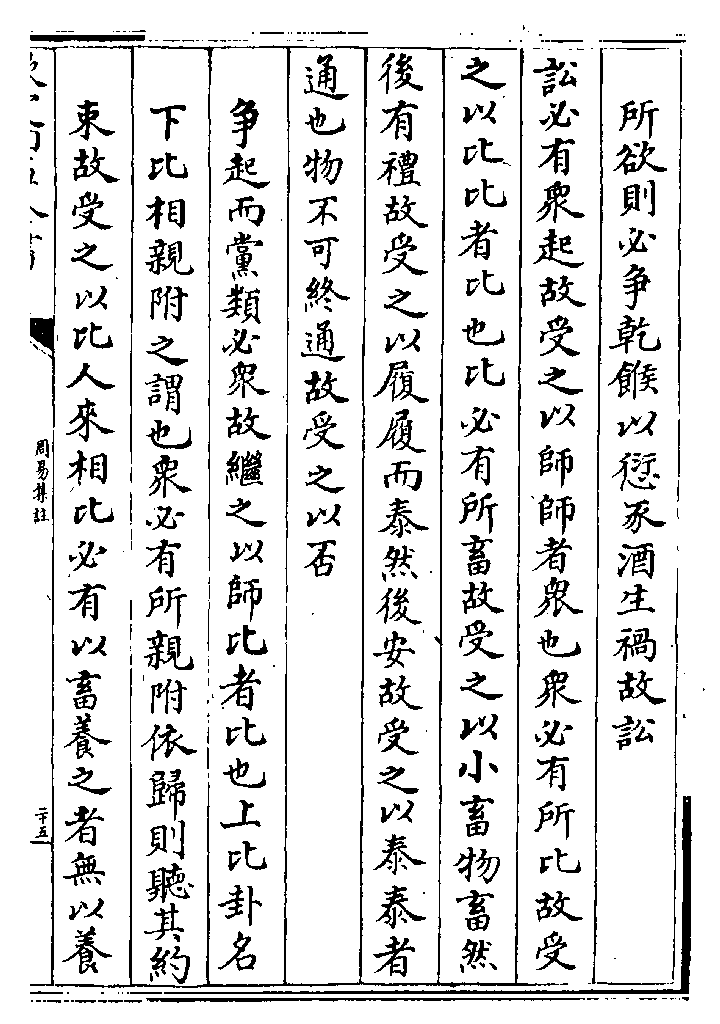 所欲則必争乾餱以愆豕酒生禍故訟
訟必有衆起故受之以師師者衆也衆必有所比故受
之以比比者比也比必有所畜故受之以小畜物畜然
後有禮故受之以履履而泰然後安故受之以泰泰者
通也物不可終通故受之以否
争起而黨類必衆故繼之以師比者比也上比卦名
下比相親附之謂也衆必有所親附依歸則聽其約
束故受之以比人來相比必有以畜養之者無以養
周易集註
二十五